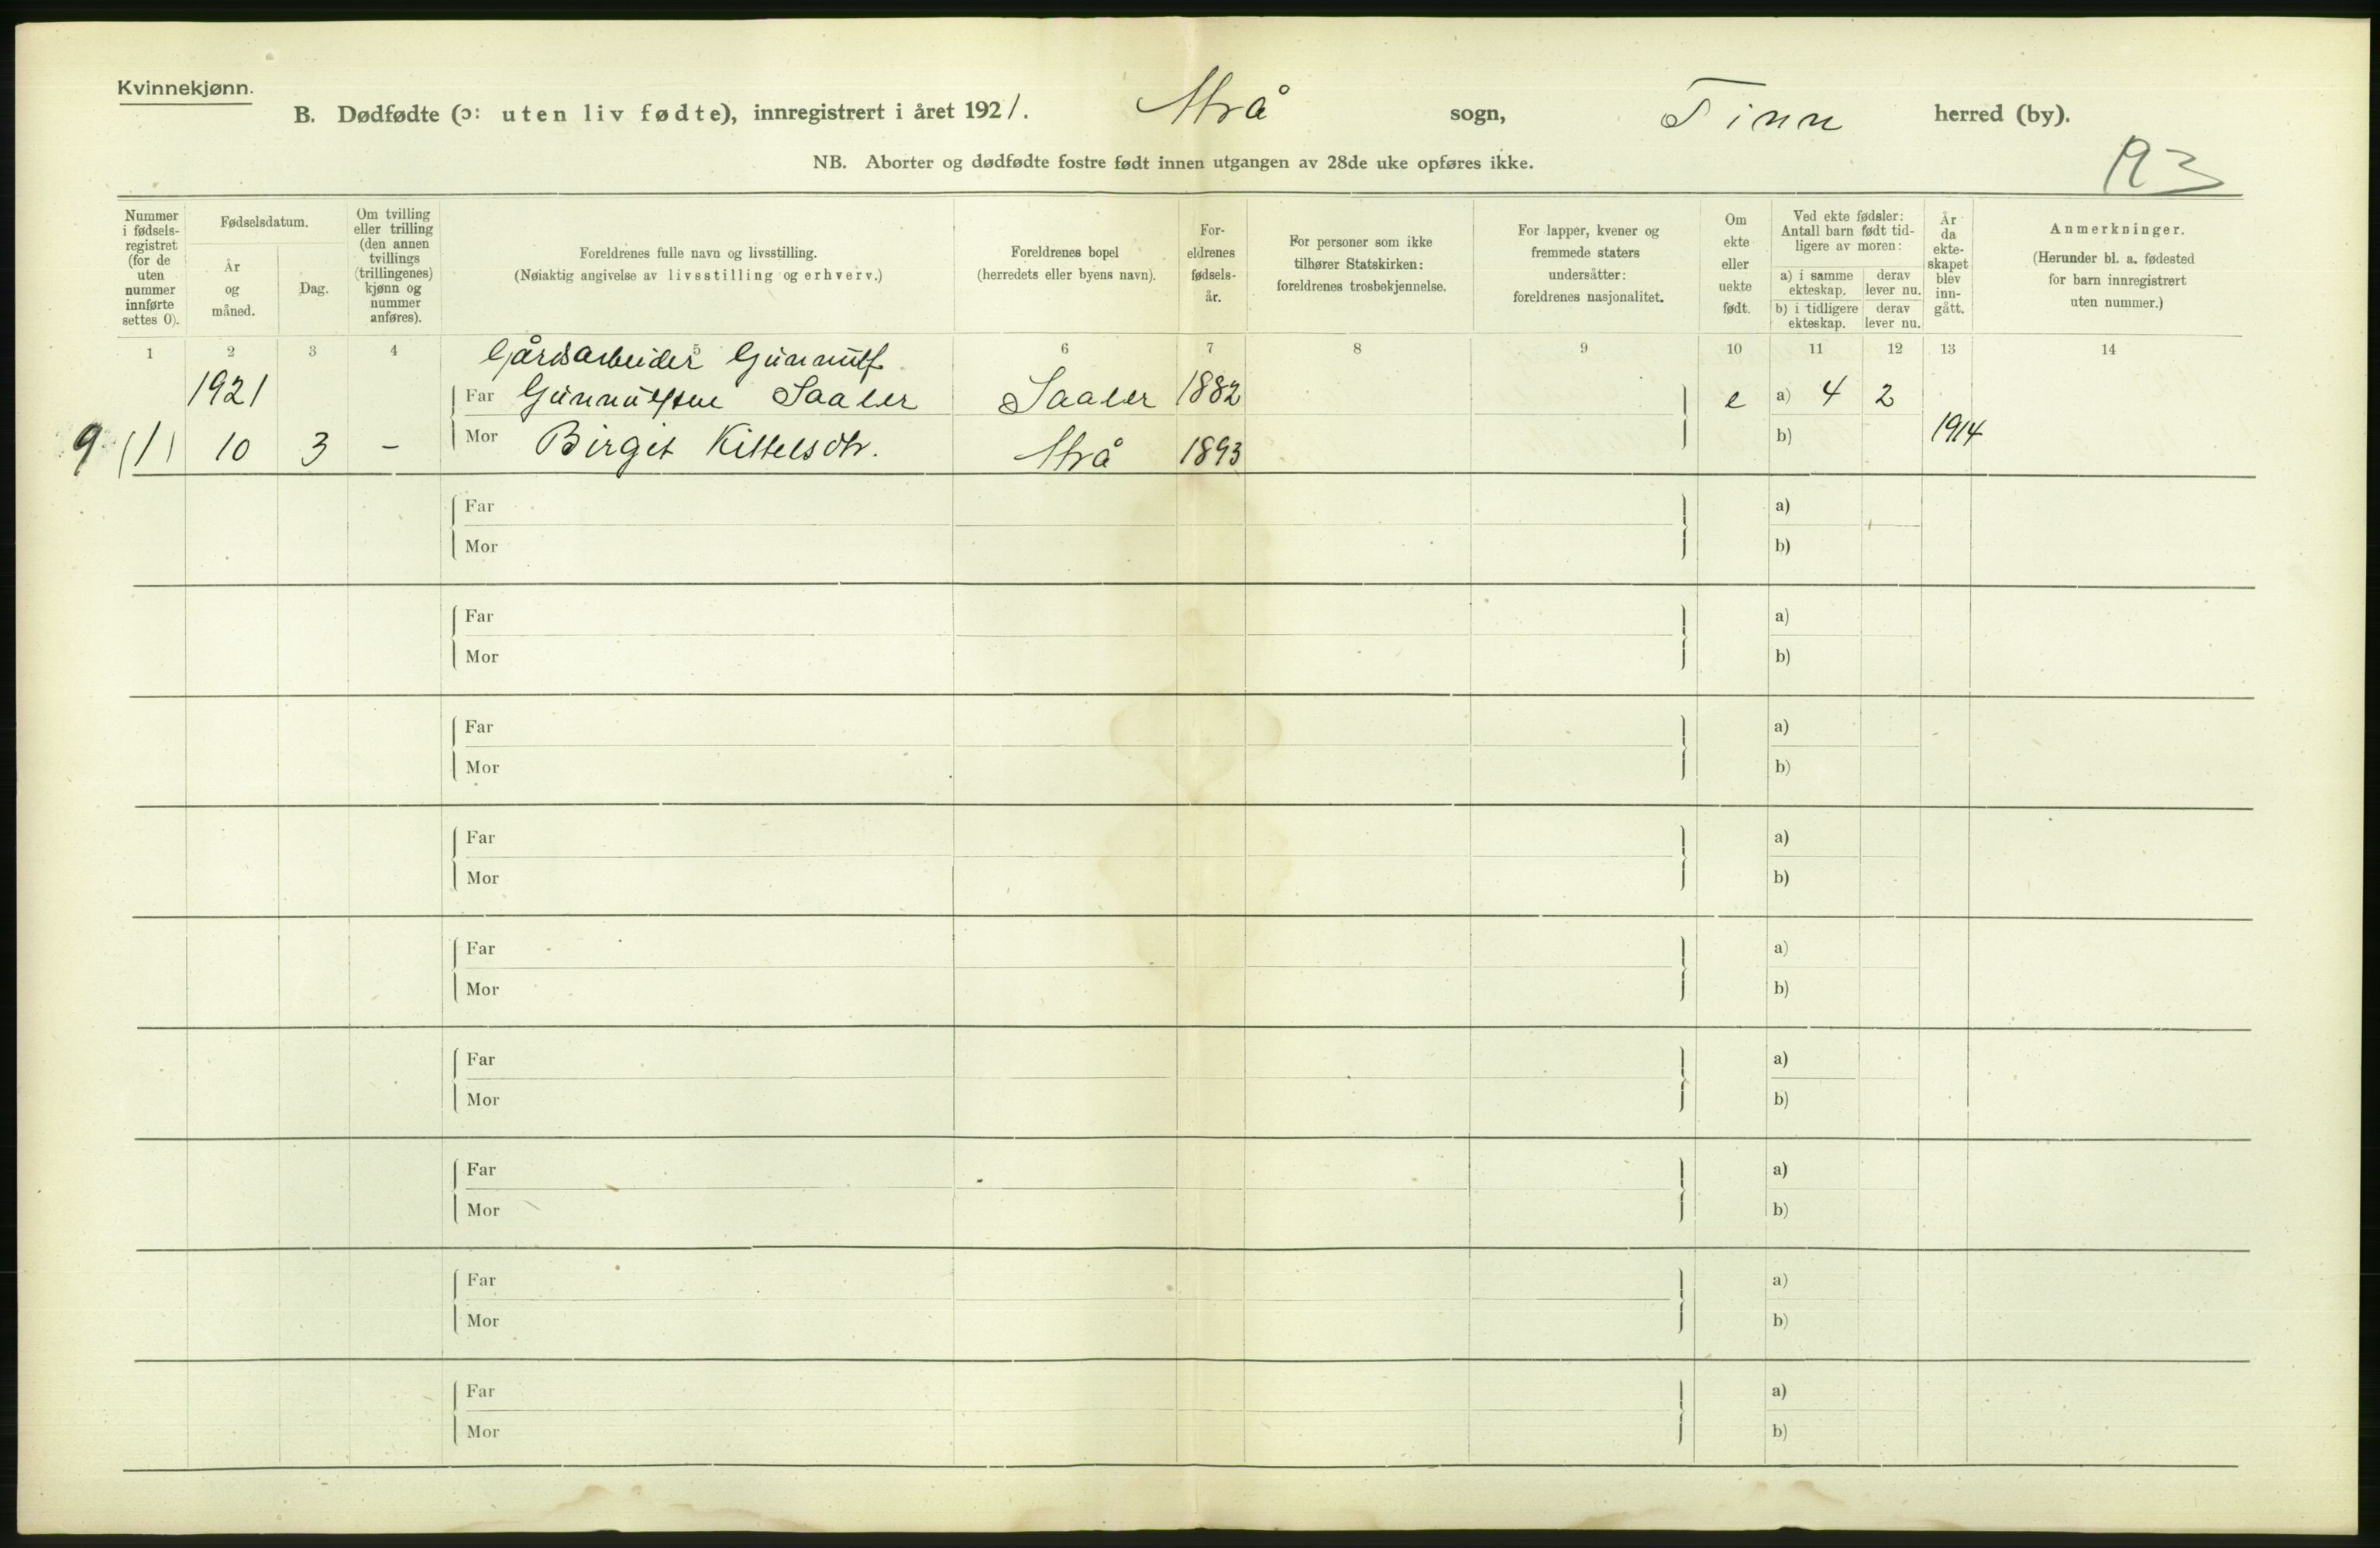 Kvinnekjønn.
B. Dødfødte (ɔ: uten liv fødte), innregistrert i året 1921. Atrå sogn, Tinn herred (by).
NB. Aborter og dødfødte fostre født innen utgangen av 28de uke opføres ikke.
Nummer
i fødsels-
registret
(for de
uten
nummer
innførte
settes 0).
Fødselsdatum.
År
og
måned.
Dag.
Om tvilling
eller trilling
(den annen
tvillings
(trillingenes)
kjønn og
nummer
anføres).
Foreldrenes fulle navn og livsstilling.
(Nøiaktig angivelse av livsstilling og erhverv.)
Foreldrenes bopel
(herredets eller byens navn).
For-
eldrenes
fødsels-
år.
For personer som ikke
tilhører Statskirken:
foreldrenes trosbekjennelse.
For lapper, kvener og
fremmede staters
undersåtter:
foreldrenes nasjonalitet.
Om
ekte
eller
uekte
født.
Ved ekte fødsler:
Antall barn født tid-
ligere av moren:
a) i samme
ekteskap.
derav
lever nu.
b) i tidligere
ekteskap.
derav
lever nu.
År
da
ekte-
skapet
blev
inn-
gått.
Anmerkninger.
(Herunder bl. a. fødested
for barn innregistrert
uten nummer.)
1 2 3 4 5 6 7 8 9 10 11 12 13 14
Gårdsarbeider Gunnulf
1921 Far Gunnulfsen Saaler Saaler 1882 e a) 4 2
9 (1) 10 3 - Mor Birgit Kittelsdtr. Atrå 1893 b) 1914
Far a)
Mor b)
Far a)
Mor b)
Far a)
Mor b)
Far a)
Mor b)
Far a)
Mor b)
Far a)
Mor b)
Far a)
Mor b)
Far a)
Mor b)
Far a)
Mor b)